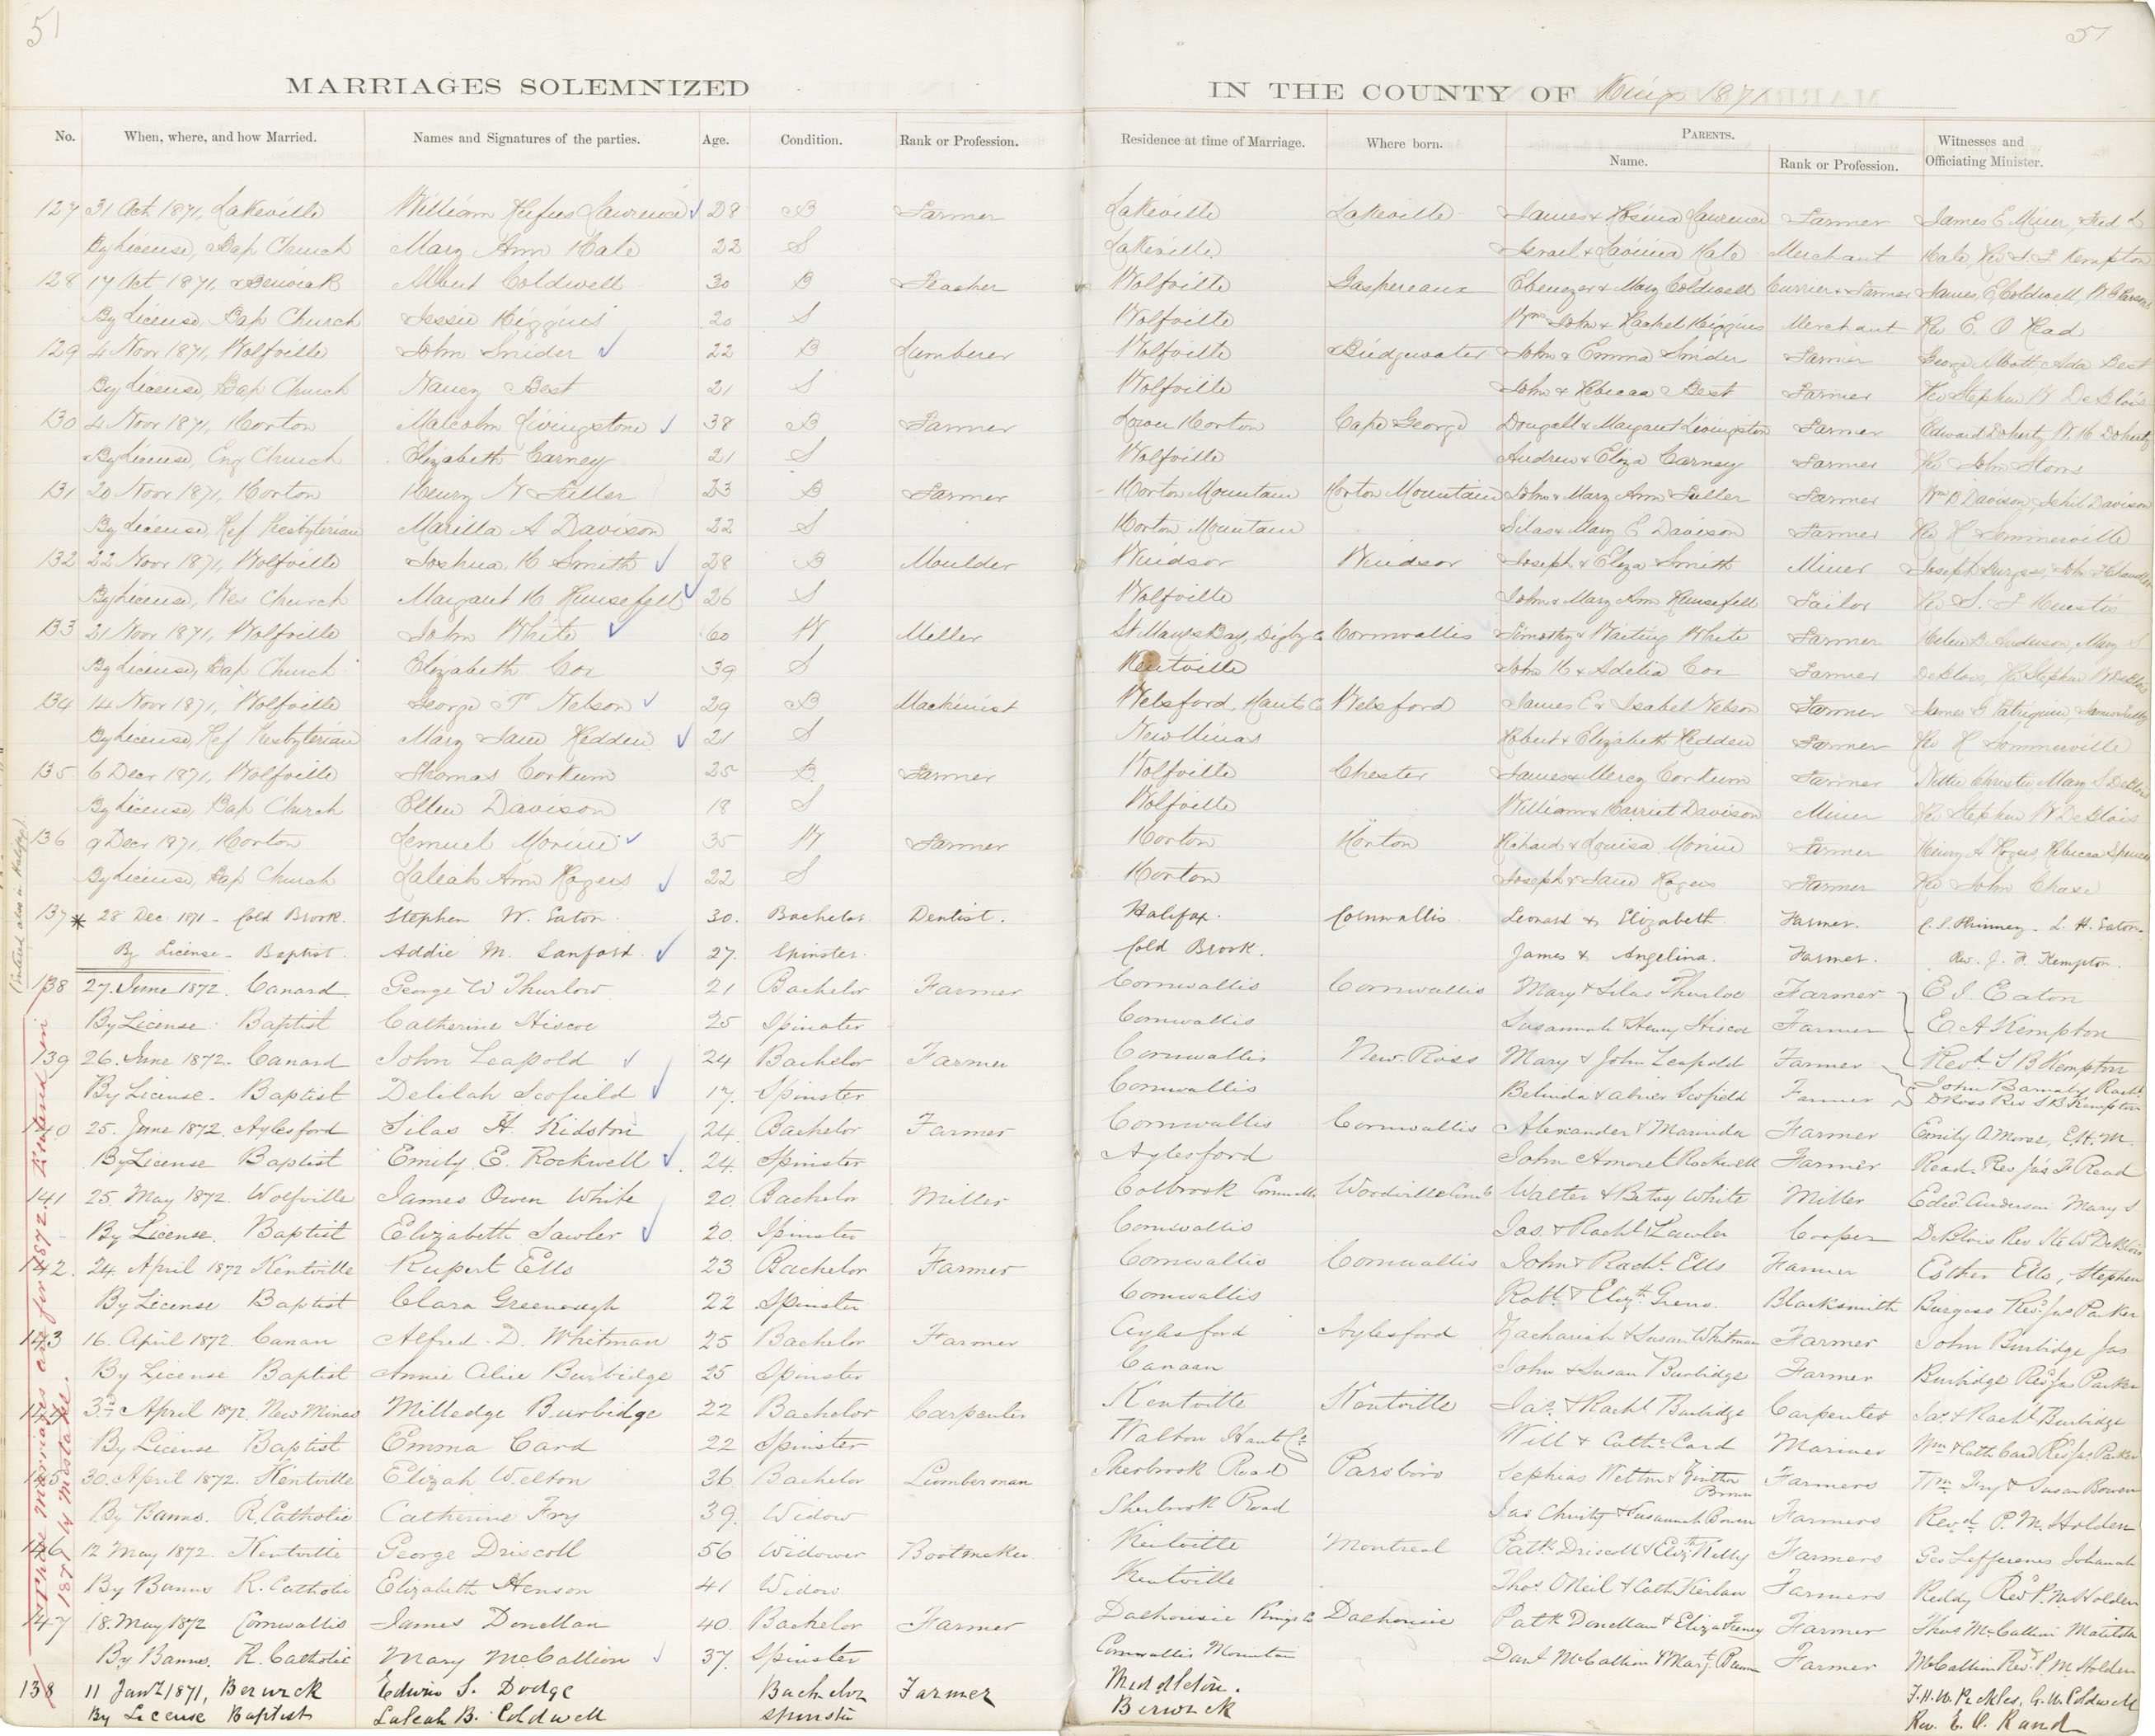 51
51
MARRIAGES SOLEMNIZED IN THE COUNTY OF Kings 1871
No. When, where, and how Married. Names and Signatures of the parties. Age. Condition. Rank or Profession. Residence at time of Marriage. Where born. PARENTS. Name. Rank or Profession. Witnesses and Officiating Minister.
127 31 Oct 1871, Lakeville William Rufus Lawrence 28 B Farmer Lakeville Lakeville James & Rosina Lawrence Farmer James E Miner, Fred L
By License, Bap Church Mary Ann Hale 22 S Lakeville Israel & Lavinia Hale Merchant Hale, Rev S. J Kempton
128 17 Oct 1871, Berwick Albert Coldwell 30 B Teacher Wolfville Gaspereaux Ebenezer & Mary Coldwell Currier & Farmer James E Coldwell, W. G Parsons
By License, Bap Church Jessie Higgins 20 S Wolfville John & Rachel Higgins Merchant Rev E. O Read
129 4 Novr 1871, Wolfville John Snider 22 B Lumberer Wolfville Bridgewater John & Emma Snider Farmer George Abbott Ada Best
By License, Bap Church Nancy Best 21 S Wolfville John & Rebecca Best Farmer Rev Stephen W DeBlois
130 4 Novr 1871, Horton Malcolm Livingstone 38 B Farmer Lower Horton Cape George Dougall & Margaret Livingston Farmer Edward Doherty, W. H Doherty
By License, Eng Church Elizabeth Carney 21 S Wolfville Andrew & Eliza Carney Farmer Rev John Storrs
131 20 Novr 1871, Horton Henry N Fuller 23 B Farmer Horton Mountain Horton Mountain John & Mary Ann Fuller Farmer Wm D Davison, Davison
By License, Ref Presbyterian Marilla A Davison 22 S Horton Mountain Silas & Mary E Davison Farmer Rev R Sommerville
132 22 Novr 1871, Wolfville Joshua H Smith 28 B Moulder Windsor Windsor Joseph & Eliza Smith Miner Joseph Burgess, John Chandler
By License, Wes Church Margaret H Hunsefell 26 S Wolfville John & Mary Ann Hunsefell Tailor Rev S. F Huestis
133 21 Novr 1871, Wolfville John White 60 W Miller St Mary's Bay, Digby Co Cornwallis Timothy & Waiting White Farmer Helen B. Anderson, Mary S
By License, Bap Church Elizabeth Cox 39 S Kentville John H & Adelia Cox Farmer DeBlois, Rev Stephen W DeBlois
134 14 Novr 1871, Wolfville George T Nelson 29 B Machinist Welsford, Hants Co Welsford James E & Isabel Nelson Farmer James G Patriquin,
By License, Ref Presbyterian Mary Jane Redden 21 S New Minas Robert & Elizabeth Redden Farmer Rev R Sommerville
135 6 Decr 1871, Wolfville Thomas Corkum 25 B. Farmer Wolfville Chester James & Mercy Corkum Farmer Nettie Christie, Mary S DeBlois
By License, Bap Church Ellen Davison 18 S Wolfville William & Harriet Davison Miner Rev Stephen W DeBlois
136 9 Decr 1871, Horton Lemuel Morine 35 W Farmer Horton Horton Richard & Louisa Morine Farmer Henry A Rogers, Rebecca Spencer
By License, Bap Church Laleah Ann Rogers 22 S Horton Joseph & Jane Rogers Farmer Rev John Chase
(Entered also in Halifax)
137 * 28 Dec. 1871 - Cold Brook. Stephen W. Eaton. 30. Bachelor. Dentist. Halifax. Cornwallis Leonard & Elizabeth Farmer. C. S. Phinney - L. H. Eaton.
By License - Baptist. Addie M. Sanford. 27. Spinster. Cold Brook. James & Angelina. Farmer. Rev. J. F. Kempton.
These marriages are for 1872. Entered in 1871 by mistake.
138 27. June 1872. Canard George W Thurlow 21 Bachelor Farmer Cornwallis Cornwallis Mary & Silas Thurloe Farmer E J. Eaton
By License Baptist Catherine Hiscoe 25 Spinster Cornwallis Susannah & Henry Hiscoe Farmer E. A Kempton
139 26. June 1872. Canard John Leapold 24 Bachelor Farmer Cornwallis New Ross Mary & John Leapold Farmer Revd. S B Kempton
By License - Baptist Delilah Scofield 17. Spinster Cornwallis Belinda & Abner Scofield Farmer John Barnaby Rachl DRoss Rev S B Kempton
140 25. June 1872. Aylesford Silas H. Kidston 24. Bachelor Farmer Cornwallis Cornwallis Alexander & Marinda Farmer Emily A Morse, E H. M.
By License Baptist Emily E. Rockwell 24. Spinster Aylesford John Amoret Rockwell Farmer Read - Rev Jas F Read
141 25. May 1872. Wolfville James Owen White 20. Bachelor Miller Colbrook Cornwallis Woodville Cornwls Walter & Betsy White Miller Edwd. Anderson Mary S
By License. Baptist Elizabeth Lawler 20. Spinster Cornwallis Jas. & Rachl. Lawler Cooper DeBlois Rev Ste W DeBlois
142. 24 April 1872 Kentville Rupert Ells 23 Bachelor Farmer Cornwallis Cornwallis John & Rachl. Ells Farmer Esther Ells, Stephen
By License Baptist Clara Greenough 22 Spinster Cornwallis Robt. & Elizth. Greno. Blacksmith Burgess Revd. Jas Parker
143 16. April 1872. Canan Alfred. D. Whitman 25 Bachelor Farmer Aylesford Aylesford Zachariah & Susan Whitman Farmer John Burbidge Jas
By License Baptist Annie Alice Burbidge 25 Spinster Canaan John & Susan Burbidge Farmer Burbidge Revd. Jas Parker
144 3rd April 1872. New Minas Milledge Burbidge 22 Bachelor Carpenter Kentville Kentville Jas. & Rachl Burbidge Carpenter Jas. & Rachl Burbidge
By License Baptist Emma Card 22 Spinster Walton Hants Co. Will & Cathe. Card Mariner Wm & Cath Card Revd. Jas. Parker
145 30. April 1872. Kentville Elizah Welton 36. Bachelor Lumberman Sherbrook Road Parsboro Sephias Welton & Brown Farmers Wm. Fry & Susan Bowen
By Banns. R. Catholic Catherine Fry 39. Widow Sherbrook Road Jas Christy & Susannah Bowen Farmers Revd. P. M. Holden
146 12 May 1872. Kentville George Driscoll 56 Widower Bootmaker. Kentville Montreal Patk. Driscoll & Elizth Kelly Farmers Geo Lefferenes Johanah
By Banns R. Catholic Elizabeth Henson 41 Widow Kentville Thos. ONeil & Cath Kerlan Farmers Reddy Revd P. M Holden
147 18. May 1872 Cornwallis James Donellan 40. Bachelor Farmer Dalhousie Kings Co Dalhousie Patk Donellan & Eliza Feeney Farmer Thos McCallion Matilda
By Banns. R. Catholic Mary McCallion 37. Spinster Cornwallis Mountain Danl McCallion & Margt. Farmer McCallion Revd. P. M Holden
138 11 Jany 1871, Berwick Edwin S. Dodge Bachelor Farmer Middleton. F. H. W. Pickles, G. W. Coldwell
By License Baptist Laleah B. Coldwell Spinster Berwick Rev. E. O. Rand